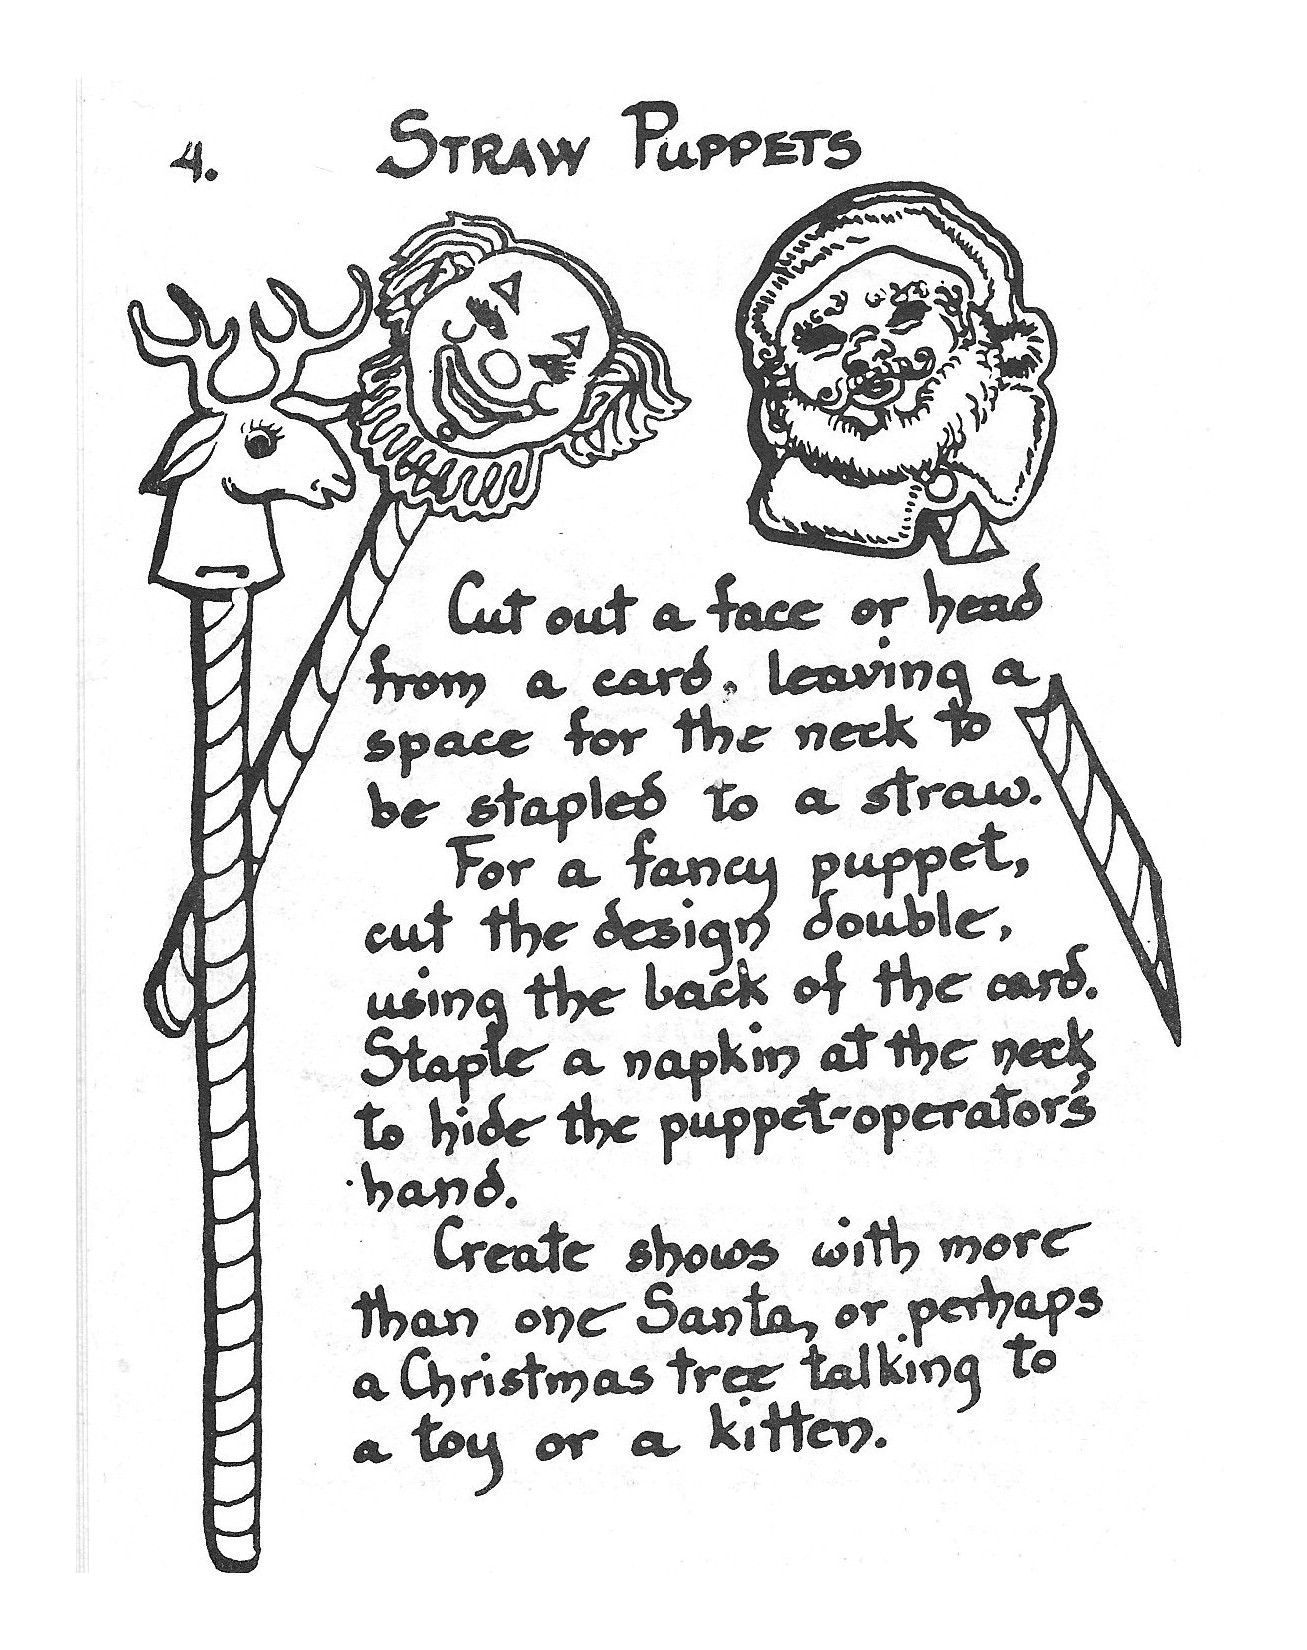 4. STRAW PUPPETS
Cut out a face or head
from a card, leaving a
space for the neck to
be stapled to a straw.
For a fancy puppet,
cut the design double,
using the back of the card.
Staple a napkin at the neck
to hide the puppet-operator's
hand.
Create shows with more
than one Santa, or perhaps
a Christmas tree talking to
a toy or a kitten.